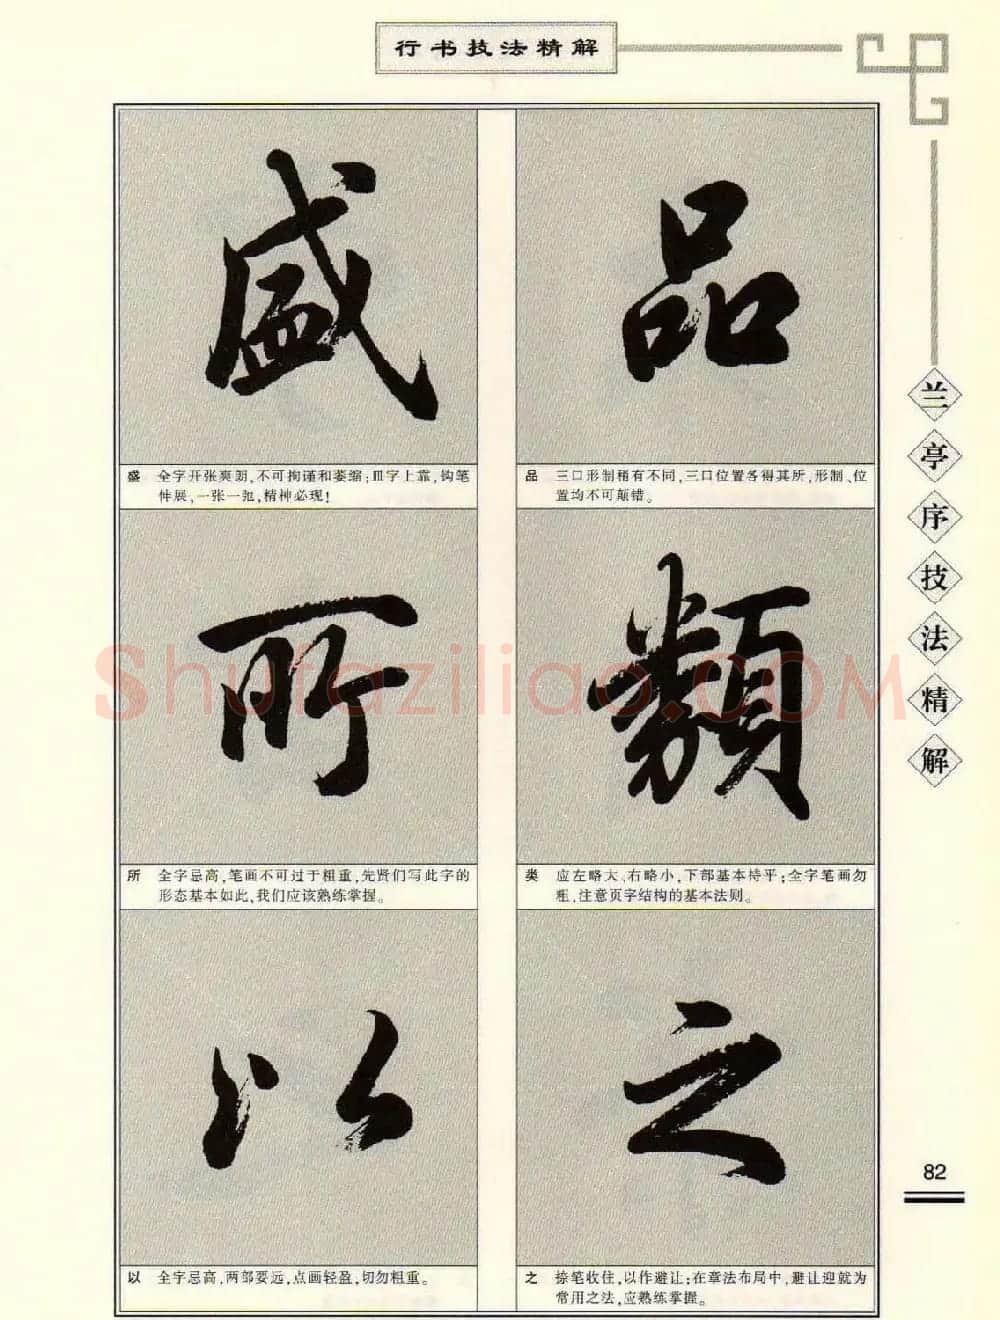 行书技法精解
品
品 三口形制稍有不同,三口位置各得其所,形制、位
置均不可颠错。
類
类 应左略大、右略小,下部基本持平;全字笔画勿
粗,注意页字结构的基本法则。
之
之 捺笔收住,以作避让;在章法布局中,避让迎就为
常用之法,应熟练掌握。
盛
盛 全字开张爽朗,不可拘谨和萎缩;皿字上靠,钩笔
伸展,一张一弛,精神必现!
所
所 全字忌高,笔画不可过于粗重,先贤们写此字的
形态基本如此,我们应该熟练掌握。
以
以 全字忌高,两部要远,点画轻盈,切勿粗重。
兰亭序技法精解
82
Shufaziliao.COM